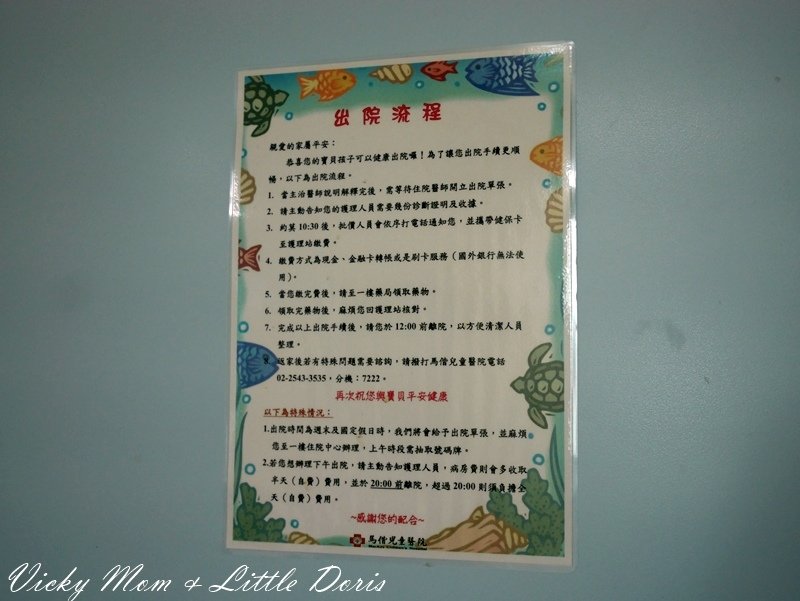 出院流程
親愛的家屬平安：
恭喜您的寶貝孩子可以健康出院囉！為了讓您出院手續更順
暢，以下為出院流程。
1. 當主治醫師說明解釋完後，需等待住院醫師開立出院單張。
2. 請主動告知您的護理人員需要幾份診斷證明及收據。
3. 約莫 10:30 後，批價人員會依序打電話通知您，並攜帶健保卡
至護理站繳費。
4. 繳費方式為現金、金融卡轉帳或是刷卡服務（國外銀行無法使
用）。
5. 當您繳完費後，請至一樓藥局領取藥物。
6. 領取完藥物後，麻煩您回護理站核對。
7. 完成以上出院手續後，請您於 12:00 前離院，以方便清潔人員
整理。
8. 返家後若有特殊問題需要諮詢，請撥打馬偕兒童醫院電話
02-2543-3535，分機：7222。
再次祝您與寶貝平安健康
以下為特殊情況：
1.出院時間為週末及國定假日時，我們將會給予出院單張，並麻煩
您至一樓住院中心辦理，上午時段需抽取號碼牌。
2.若您想辦理下午出院，請主動告知護理人員，病房費則會多收取
半天（自費）費用，並於 20:00 前離院，超過 20:00 則須負擔全
天（自費）費用。
~感謝您的配合~
馬偕兒童醫院
Vicky Mom & Little Doris